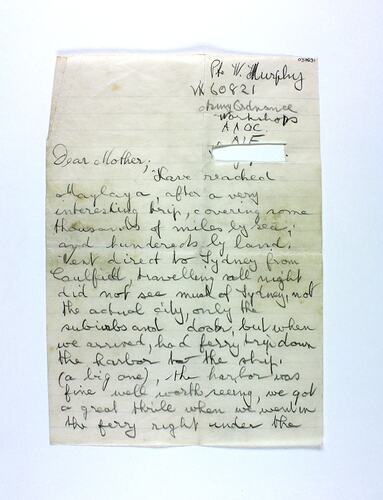 Pte W. Murphy
VX 60821
Army Ordnance
Workshops
A A O C.
A I F
Dear Mother,
Have reached
Maylaya, after a very
interesting trip, covering some
thousands of miles by sea,
and hundereds by land.
Went direct to Sydney from
Caulfield, travelling all night
did not see much of Sydney, not
the actual city, only the
suburbs and docks, but when
we arrived, had ferry trip down
the harbor to the ship.
(a big one), the harbor was
fine well worth seeing, we got
a great thrill when we went in
the ferry right under the